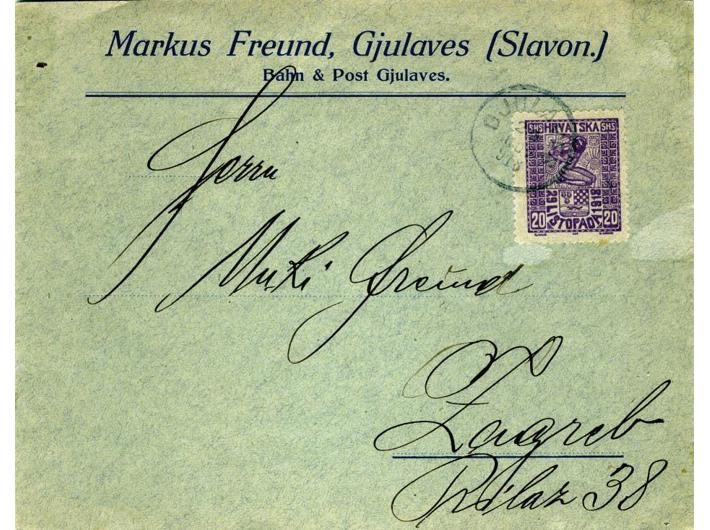 Markus Freund, Gjulaves (Slavon.)
Bahn & Post Gjulaves.
SHS HRVATSKA SHS
29 LISTOPADA 1918
20 20
Herrn
Freund
Zagreb
38